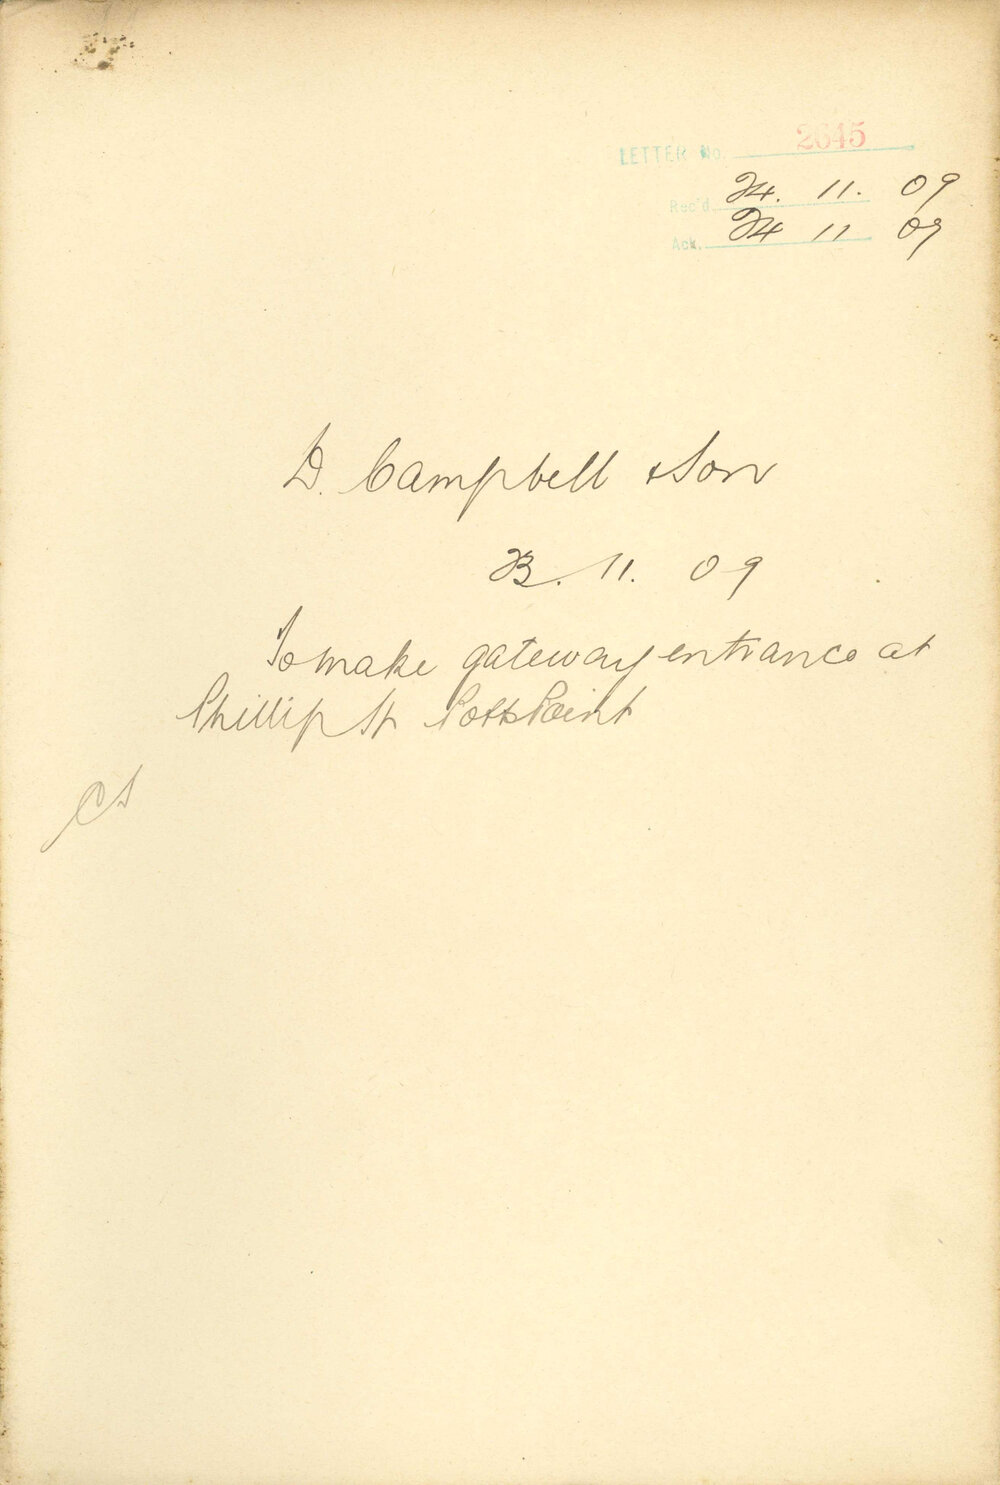 LETTER No. 2645
Rec'd. 24. 11. 09
Ack. 24 11 09
D. Campbell & Son
23. 11. 09
To make gateway entrance at
Phillip St Potts Point